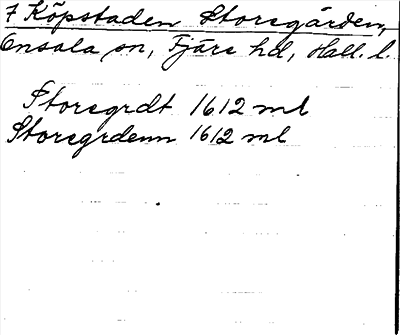 7 Köpstaden Storegården,
Onsala sn, Fjäre hd, Hall. l.
Storegrdt 1612 ml
Storegrdenn 1612 ml